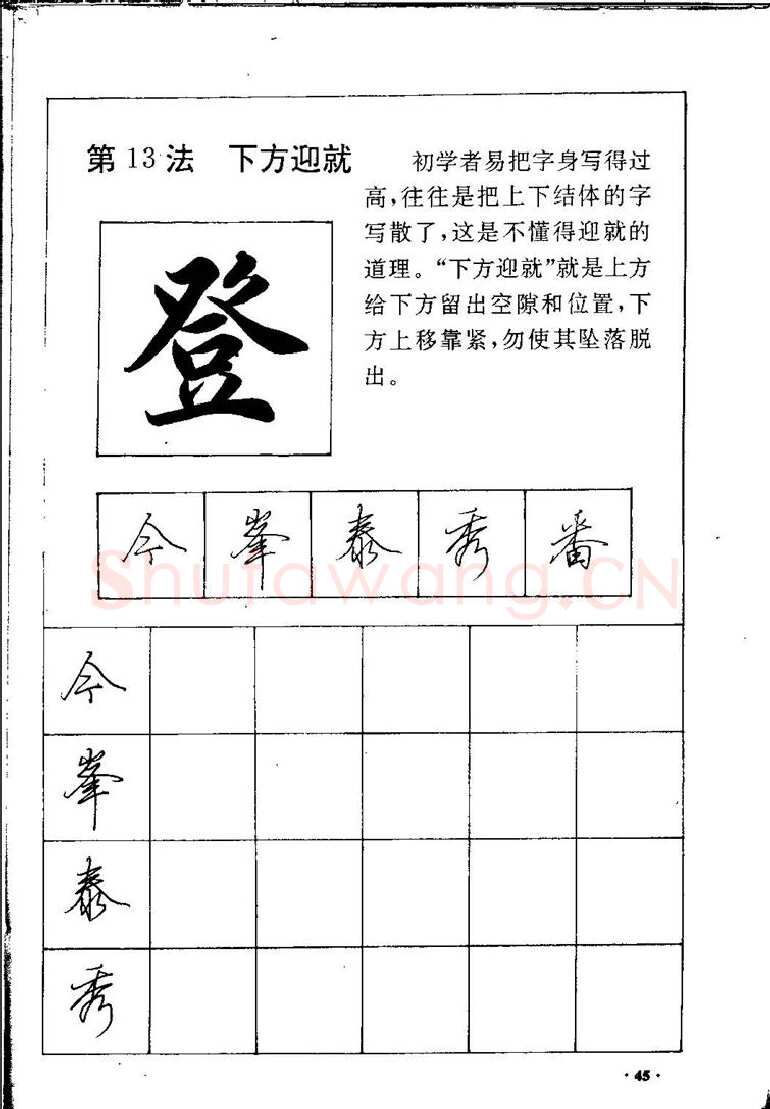 第13法 下方迎就
初学者易把字身写得过
高,往往是把上下结体的字
写散了,这是不懂得迎就的
道理。“下方迎就”就是上方
给下方留出空隙和位置,下
方上移靠紧,勿使其坠落脱
出。
登
今 峯 泰 秀 番
Shufawang.CN
今
峯
泰
秀
·45·